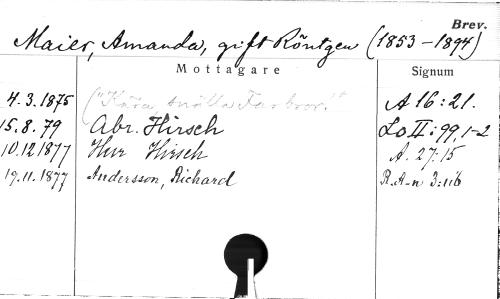 Brev.
Maier, Amanda, gift Röntgen (1853-1894)
Mottagare Signum
4.3.1875 ("Kära snälla Farbror!" A 16:21.
15.8.79 Abr. Hirsch Lo II:99,1-2
10.12.1877 Hur Hirsch A. 27:15
19.11.1877 Andersson, Richard R.A-n 3:116